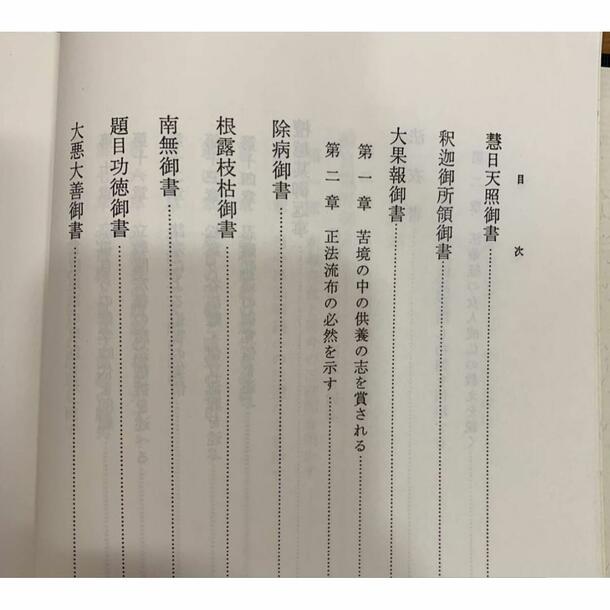 目次
慧日天照御書
釈迦御所領御書
大果報御書
第一章 苦境の中の供養の志を賞される
第二章 正法流布の必然を示す
除病御書
根露枝枯御書
南無御書
題目功徳御書
大悪大善御書